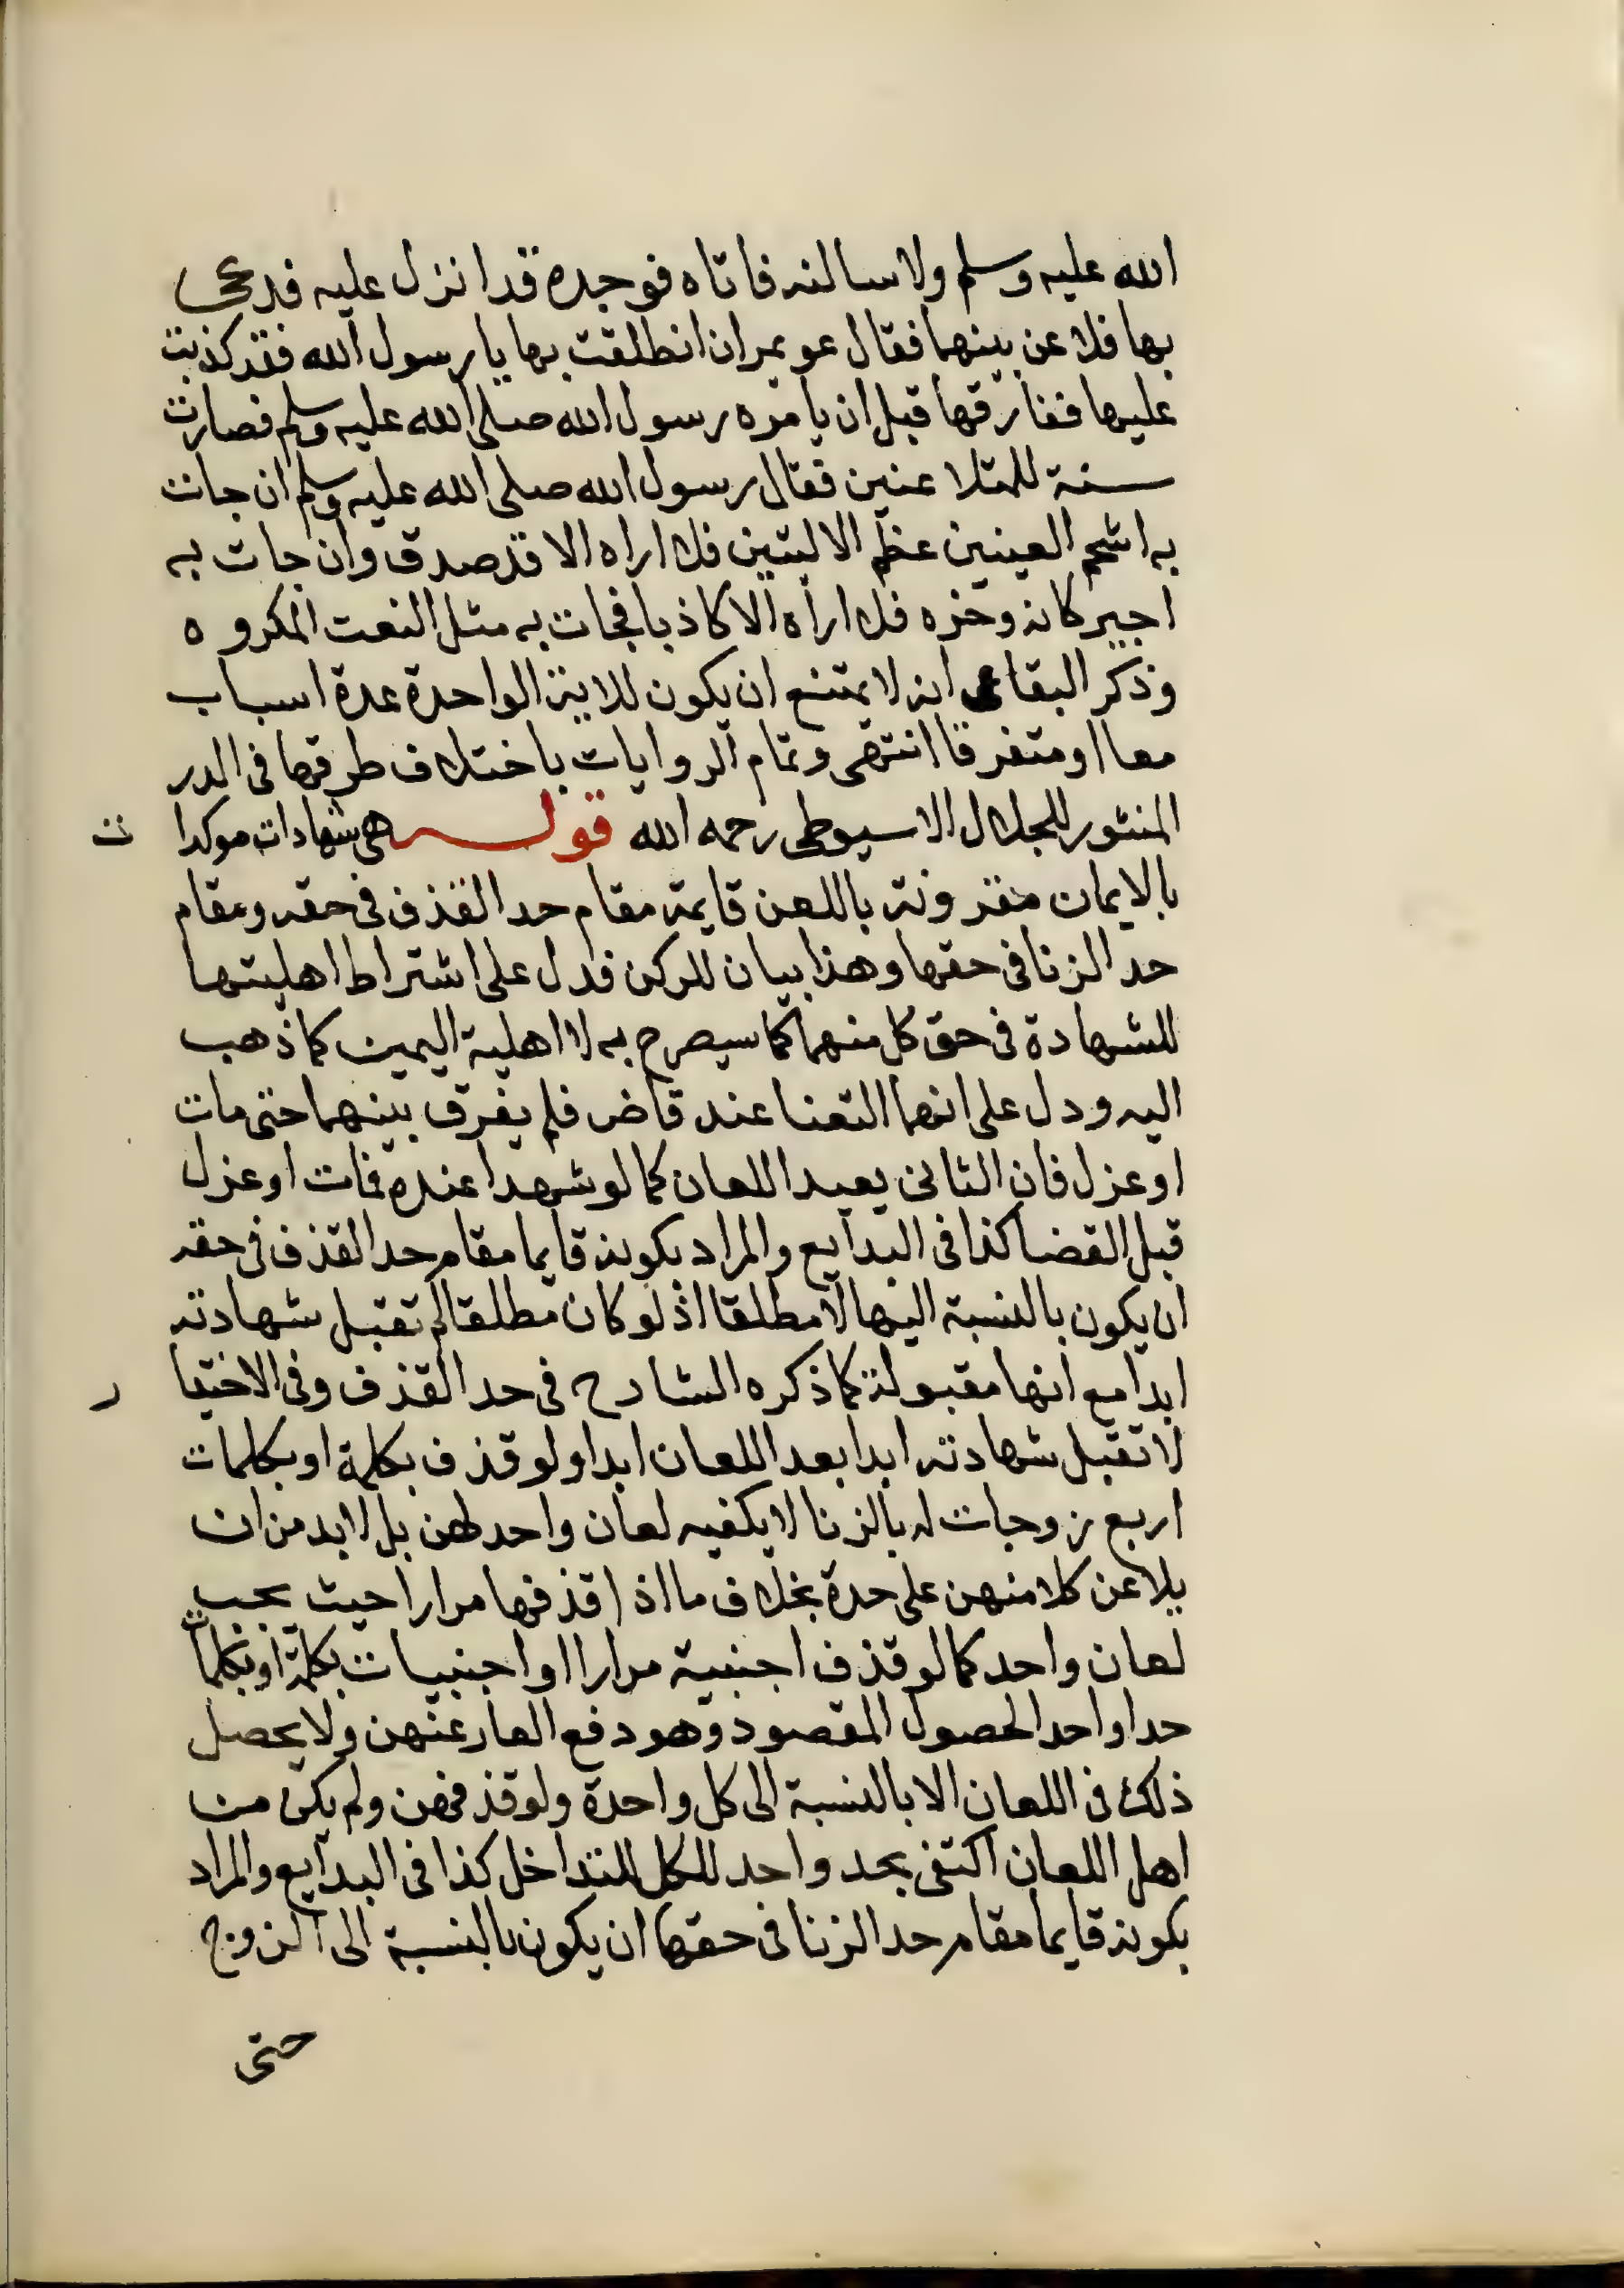 الله عليه وسلم ولاسالنه فاتاه فوجده قد انزل عليه فدعى
بها فلاعن بينهما فقال عويمر ان انطلقت بها يا رسول الله فقد كذبت
عليها ففارقها قبل ان يامره رسول الله صلى الله عليه وسلم فصارت
سنة للمتلاعنين فقال رسول الله صلى الله عليه وسلم ان جات
به اشحم العينين عظم الاليتين فلا اراه الا قد صدق وان جات به
احيمر كانه وحره فلا اراه الا كاذبا فجات به مثل النعت المكروه
وذكر البقاعى انه لا يمتنع ان يكون للاية الواحدة عدة اسباب
معا او متفرقا انتهى وتمام الروايات باختلاف طرقها فى الدر
المنثور للجلال الاسيوطى رحمه الله قوله هى شهادات موكدات
بالايمان مقرونة باللعن قايمة مقام حد القذف فى حقه ومقام
حد الزنا فى حقها وهذا بيان للركن فدل على اشتراط اهليتها
للشهادة فى حق كل منهما كما سيصرح به لا اهلية اليمين كما ذهب
اليه ودل على انهما التعنا عند قاض فلم يفرق بينهما حتى مات
او عزل فان الثانى يعيد اللعان كما لو شهدا عنده فمات او عزل
قبل القضا كذا فى البدايع والمراد بكونه قايما مقام حد القذف فى حقه
ان يكون بالنسبة اليها لا مطلقا اذ لو كان مطلقا لم تقبل شهادته
ابدا مع انها مقبولة كما ذكره الشارح فى حد القذف وفى الاختيار
لا تقبل شهادته ابدا بعد اللعان ابدا ولو قذف بكلمة او بكلمات
اربع زوجات له بالزنا لا يكفيه لعان واحد لهن بل لا بد من ان
يلاعن كلا منهن على حدة بخلاف ما اذا قذفها مرارا حيث يجب
لعان واحد كما لو قذف اجنبية مرارا او اجنبيات بكلمة او بكلمات
حدا واحدا لحصول المقصود وهو دفع العار عنهن ولا يحصل
ذلك فى اللعان الا بالنسبة الى كل واحدة ولو قذفهن ولم يكن من
اهل اللعان اكتفى بحد واحد للكل للتداخل كذا فى البدايع والمراد
بكونه قايما مقام حد الزنا فى حقها ان يكون بالنسبة الى الزوج
حتى